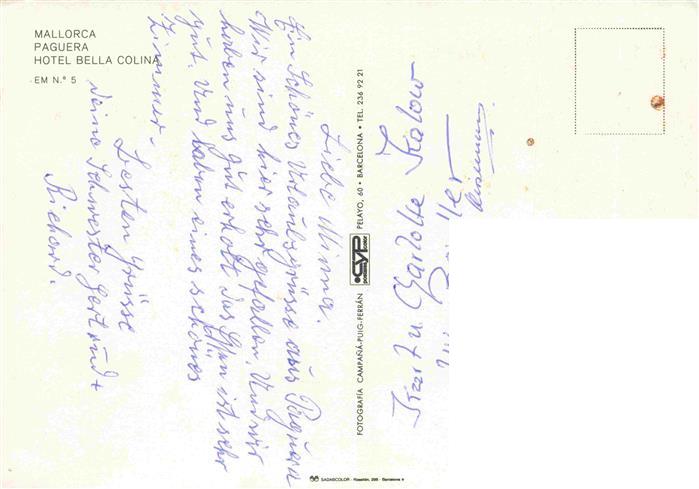 MALLORCA
PAGUERA
HOTEL BELLA COLINA
EM N.° 5
Liebe Minna.
Ein Schönes Urlaubsgrüsse aus Paguera
Wir sind hier sehr gefallen. Und wir
haben uns gut erholt das Essen ist sehr
gut. Und haben eines schönes
Zimmer.
Besten Grüsse
deine Schwester Gertrud +
Richard.
FOTOGRAFÍA CAMPAÑÁ-PUIG-FERRÁN
CYP
PELAYO, 60 • BARCELONA • TEL. 236 92 21
Charlotte Kalow
SADAGCOLOR - Rosellón, 298 - Barcelona